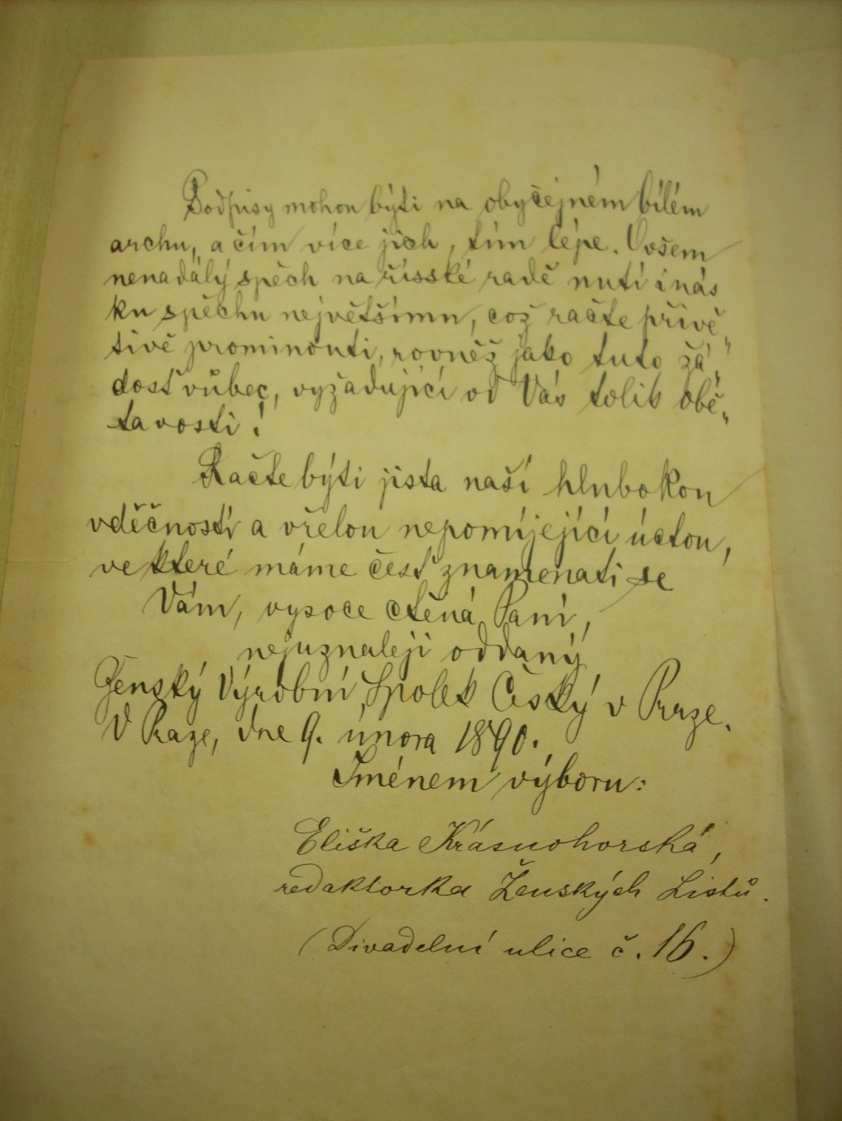 Podpisy mohou býti na obyčejném bílém
archu, a čím více jich, tím lépe. Ovšem
nenadálý spěch na říšské radě nutí i nás
ku spěchu největšímu, což račte přívě-
tivě prominouti, rovněž jako tuto žá-
dosť vůbec, vyžadující od Vás tolik obě-
tavosti!
Račte býti jista naší hlubokou
vděčností a vřelou nepomíjející úctou,
ve které máme česť znamenati se
Vám, vysoce ctěná Paní,
nejuznaleji oddaný
Ženský Výrobní Spolek Český v Praze.
V Praze, dne 9. února 1890.
Jménem výboru:
Eliška Krásnohorská,
redaktorka Ženských Listů.
(Divadelní ulice č. 16.)